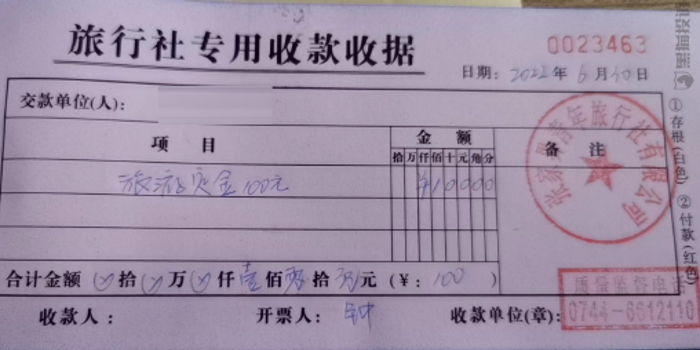 旅行社专用收款收据
0023463
日期: 2022年6月30日
交款单位(人):
项 目
金 额
备 注
拾万仟佰十元角分
旅游定金100元
¥10000
张家界青年旅行社有限公司
合计金额 拾 万 仟壹佰零拾 元(¥: 100 )
质量监督电话
0744-6612110
收款人:
开票人: 钟
收款单位(章):
①存根(白色) ②付款(红色)
黑猫投诉